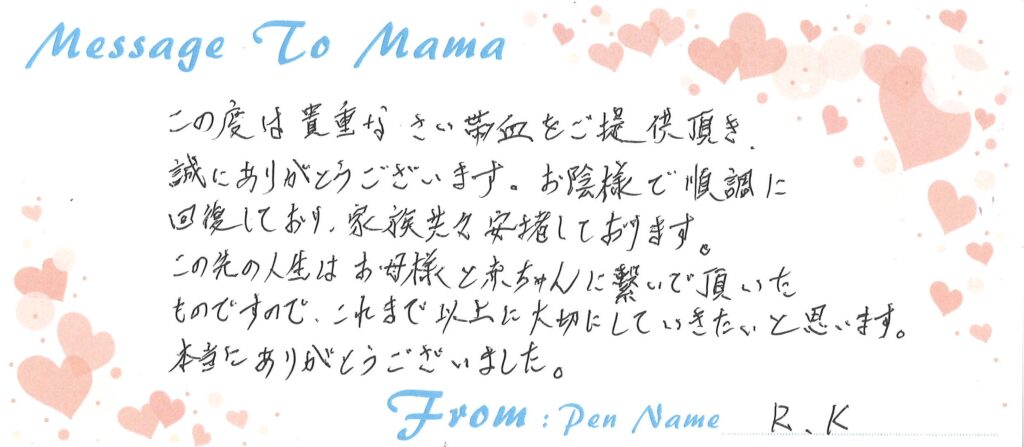 Message To Mama
この度は貴重なさい帯血をご提供頂き、
誠にありがとうございます。お陰様で順調に
回復しており、家族共々安堵しております。
この先の人生はお母様と赤ちゃんに繋いで頂いた
ものですので、これまで以上に大切にしていきたいと思います。
本当にありがとうございました。
From : Pen Name R、K